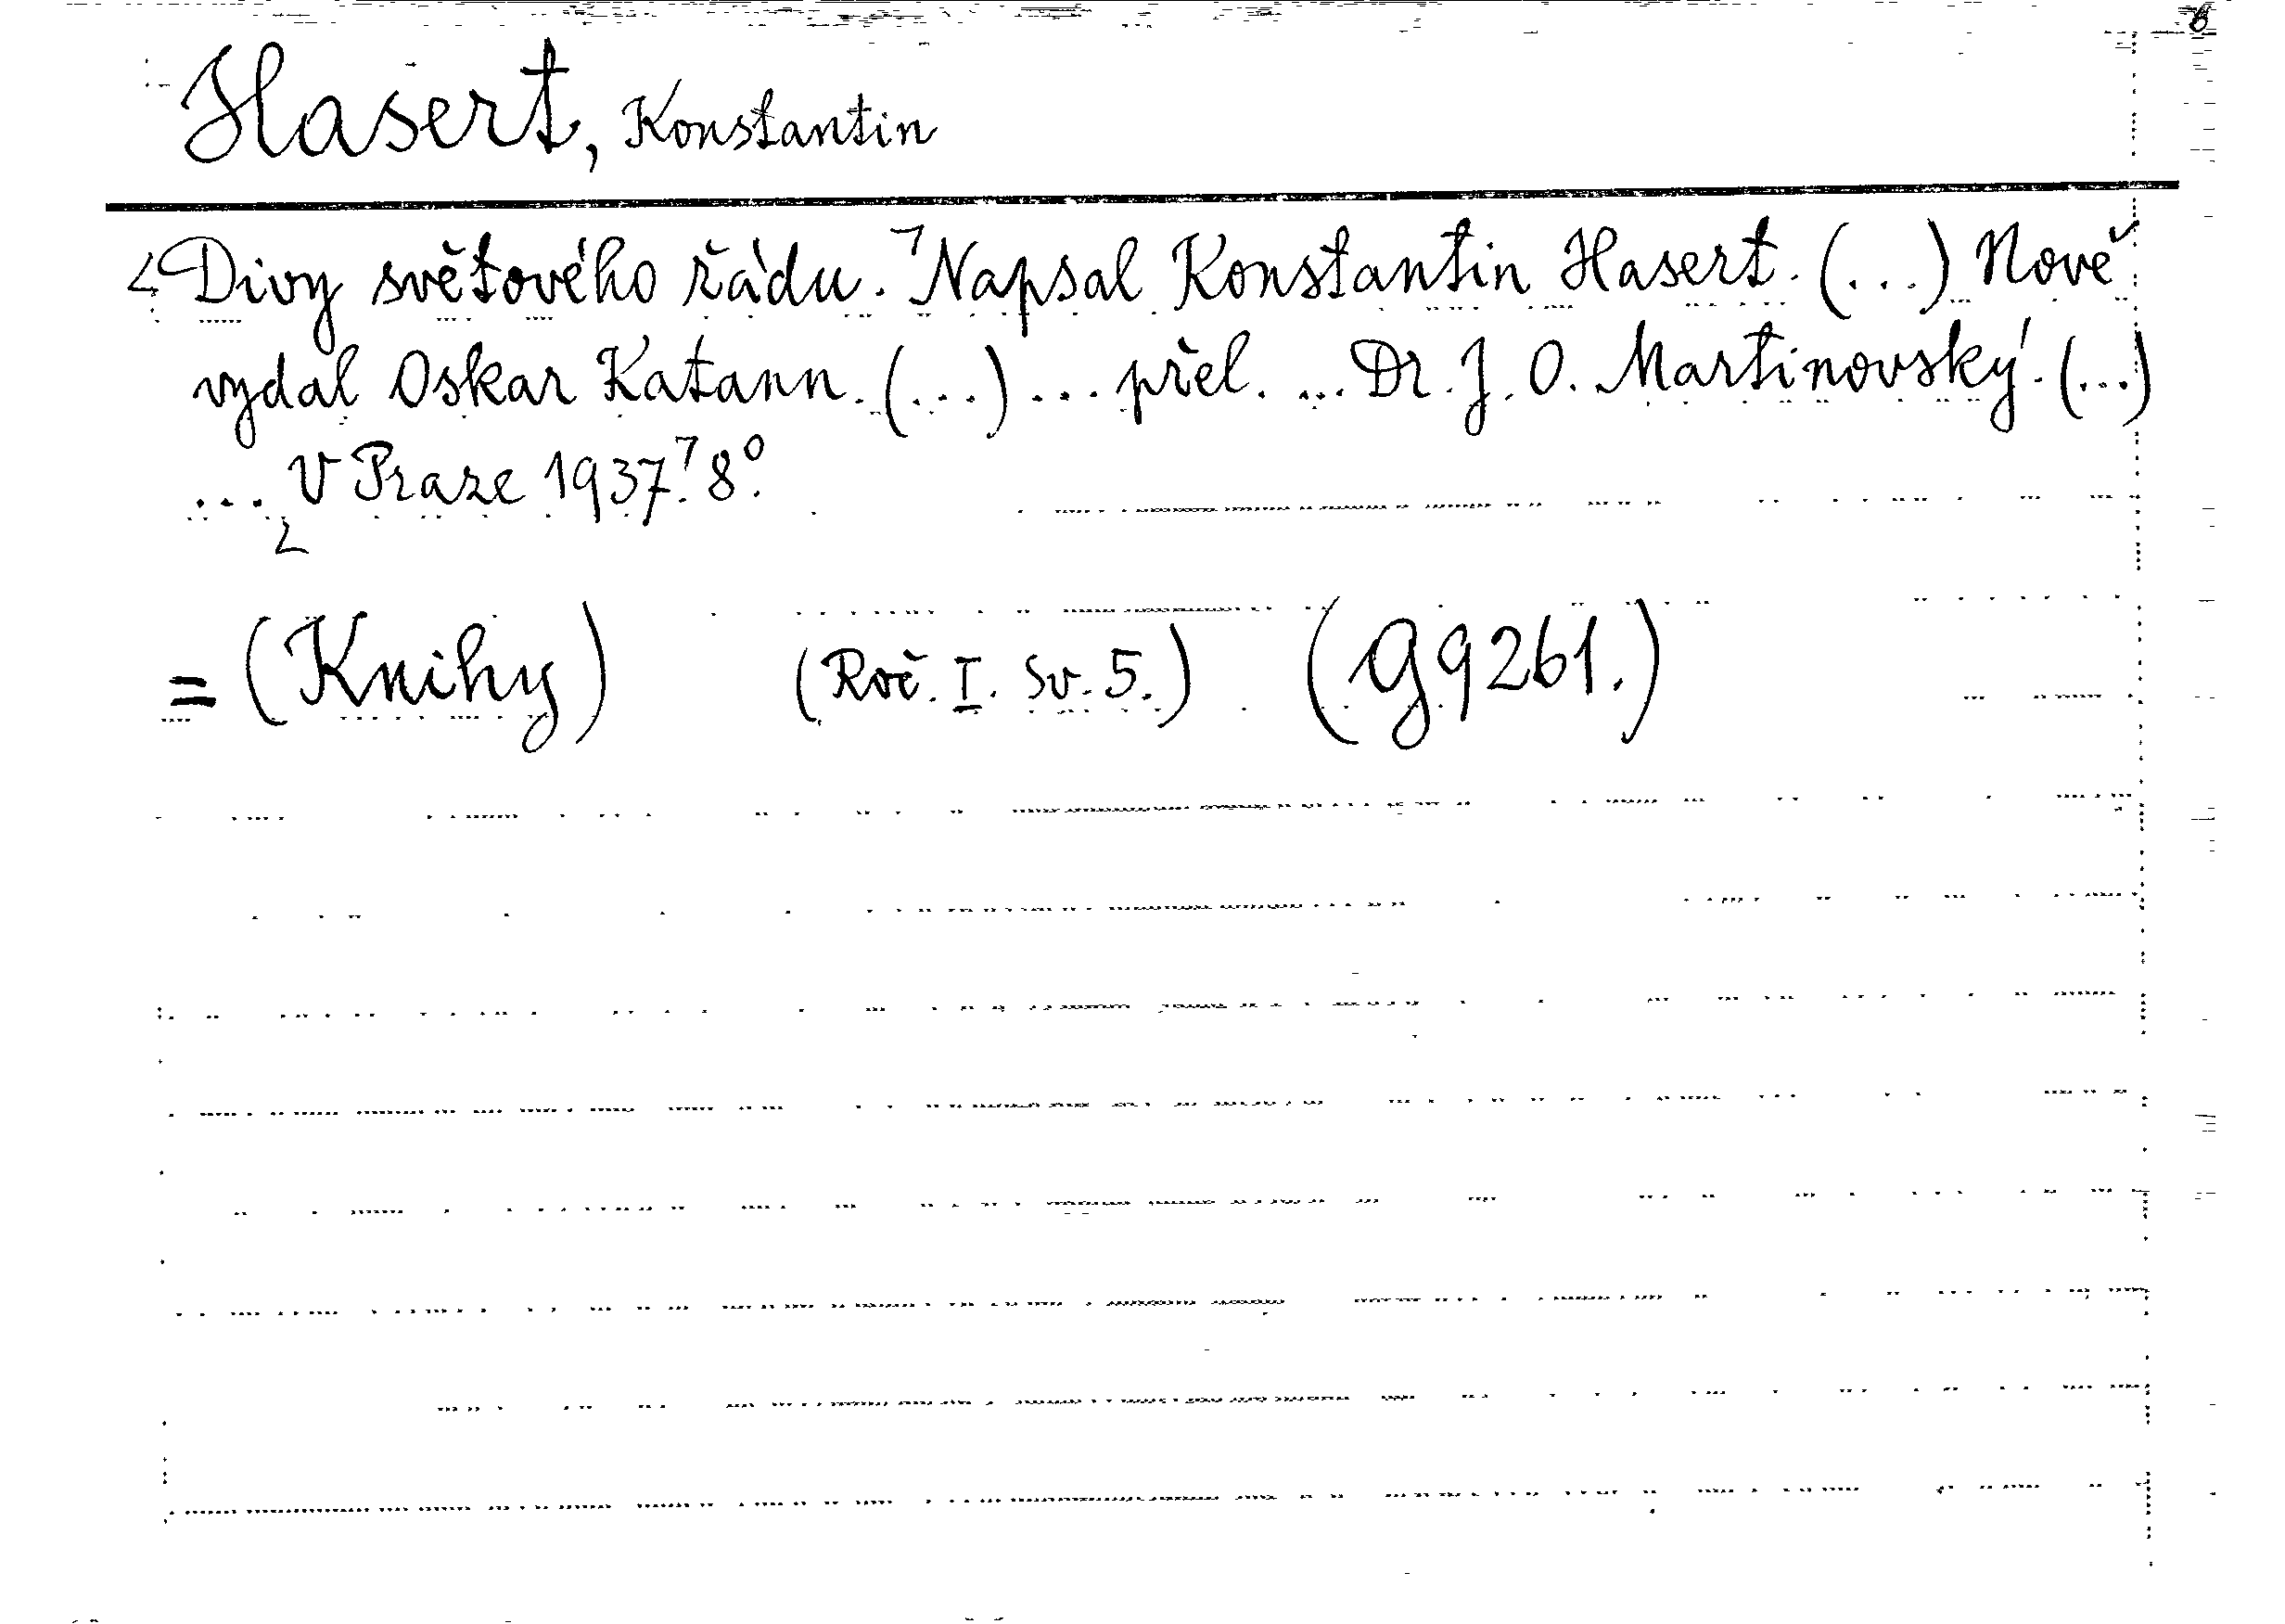 Hasert, Konstantin
Divy světového řádu. Napsal Konstantin Hasert. (...) Nově
vydal Oskar Katann. (...) ... přel. ... Dr. J. O. Martinovský. (...)
... V Praze 1937. 8°.
= (Knihy) (Roč. I. Sv. 5.) (G 9261.)